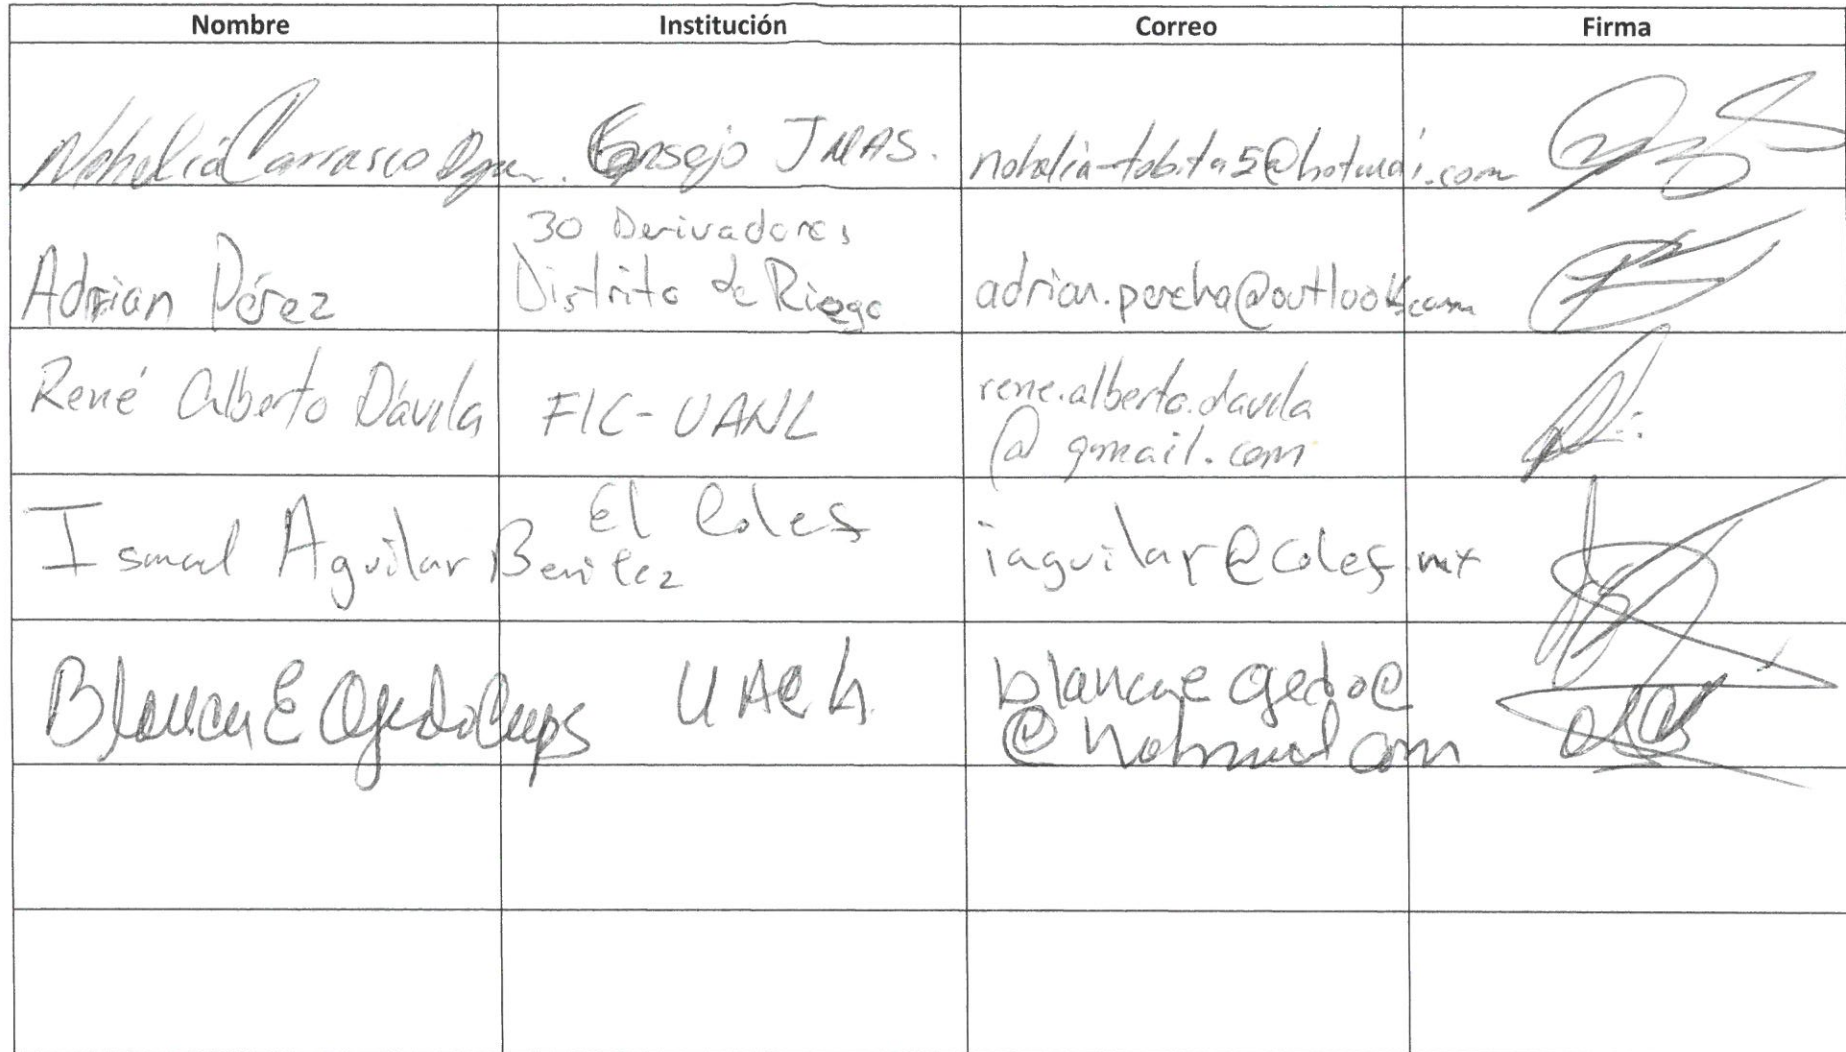 Nombre Institución Correo Firma
Nohelia Carrasco Consejo JMAS. nohelia-tobita5@hotmai.com
30 Derivadores
Adrian Pérez Distrito de Riego adrian.pereha@outlook.com
René Alberto Dávila FIC-UANL rene.alberto.davila
@ gmail.com
Ismael Aguilar Benitez El Colef iaguilar@colef.mx
Blanca E Ojeda UACh blancaeojedac
@hotmail com